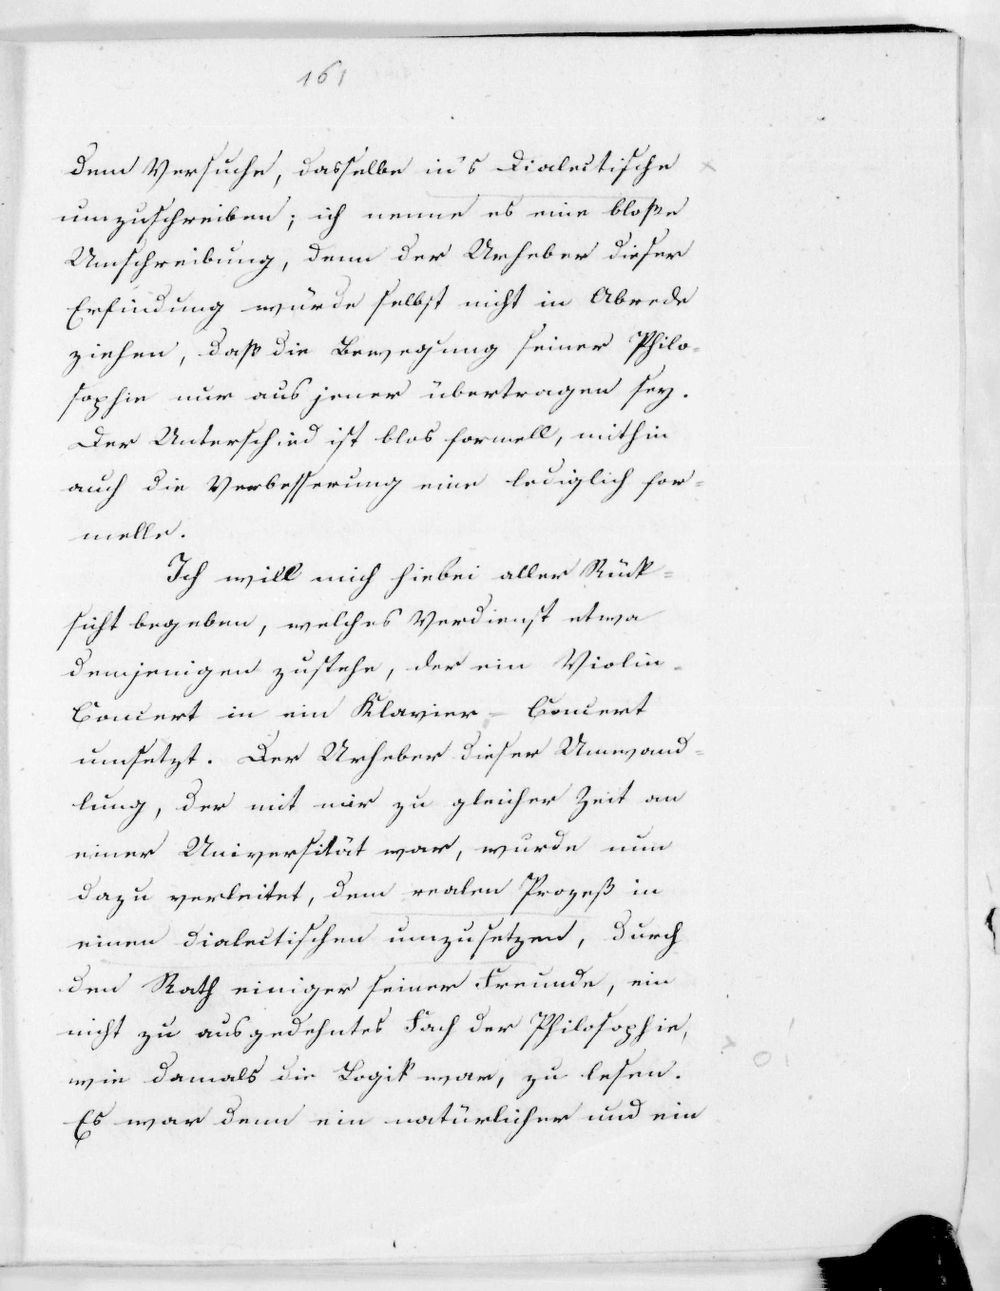 161
dem Versuche, dasselbe in's Dialectische
umzuschreiben; ich nenne es eine bloße
Umschreibung, denn der Urheber dieser
Erfindung würde selbst nicht in Abrede
ziehen, daß die Bewegung seiner Philo-
sophie nur aus jener übertragen sey.
Der Unterschied ist blos formell, mithin
auch die Verbesserung eine lediglich for-
melle.
Ich will mich hiebei aller Rück-
sicht begeben, welches Verdienst etwa
demjenigen zustehe, der ein Violin-
Concert in ein Klavier-Concert
umsetzt. Der Urheber dieser Umwand-
lung, der mit mir zu gleicher Zeit an
einer Universität war, wurde nun
dazu verleitet, den realen Prozeß in
einen dialectischen umzusetzen, durch
den Rath einiger seiner Freunde, ein
nicht zu ausgedehntes Fach der Philosophie,
wie damals die Logik war, zu lesen.
Es war denn ein natürlicher und ein